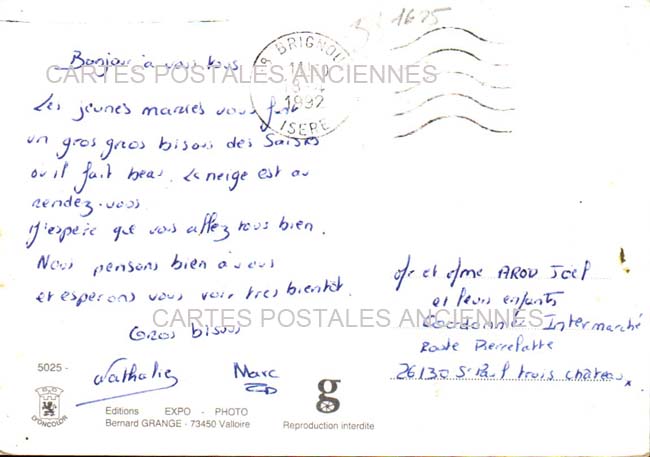 38 1675
BRIGNOU
1992
ISERE
Bonjour à vous tous
CARTES POSTALES ANCIENNES
Les jeunes mariés vous font
un gros gros bisous des Saisies
ou il fait beau. La neige est au
rendez-vous
J'espère que vous allez tous bien.
Nous pensons bien à vous
et esperons vous voir tres bientôt.
Gros bisous
Nathalie Marc
Mr et Mme AROU Joël
et leurs enfants
CARTES POSTALES ANCIENNES
Cordonnerie Intermarché
Route Pierrelatte
26130 St Paul trois chateaux
5025 -
D'ONCOLOR
Editions EXPO - PHOTO
Bernard GRANGE - 73450 Valloire
g
Reproduction interdite